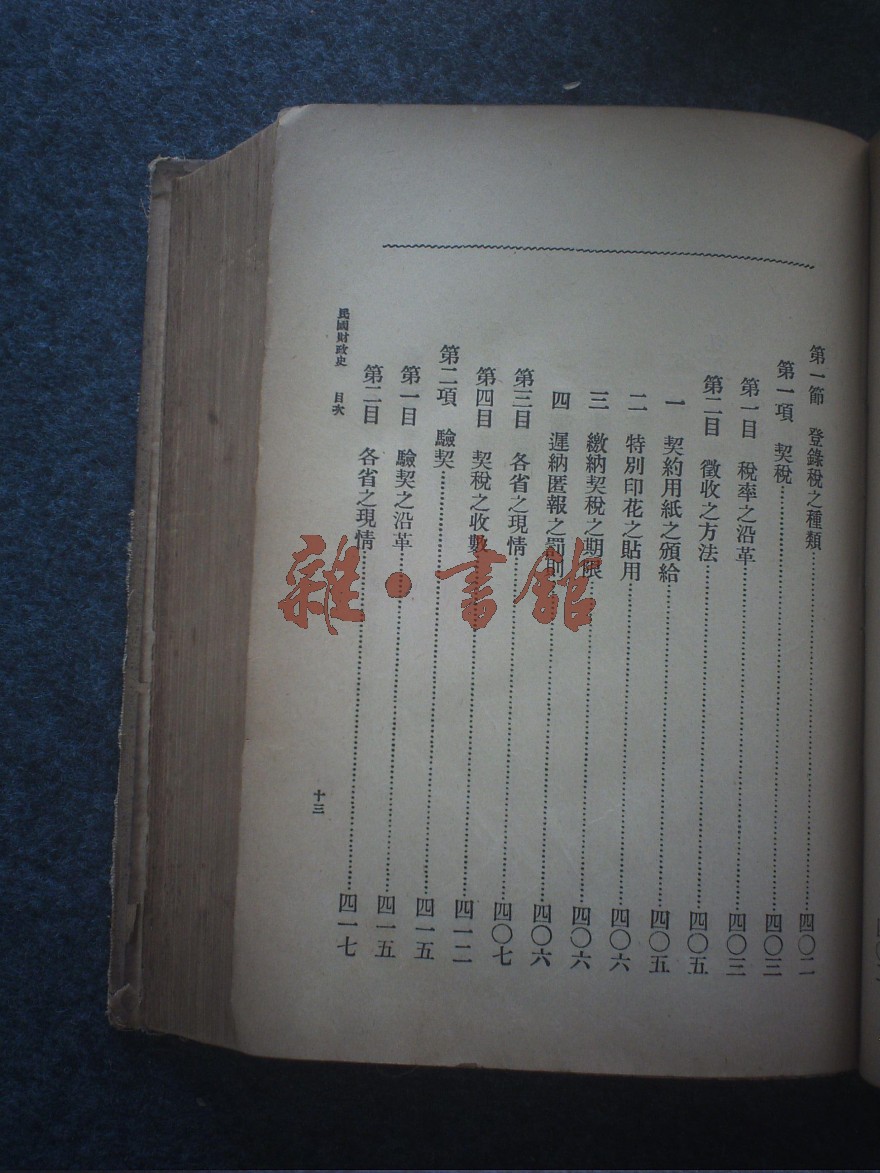 第一節 登錄稅之種類……四〇二
第一項 契稅……四〇三
第一目 稅率之沿革……四〇三
第二目 徵收之方法……四〇五
一 契約用紙之頒給……四〇五
二 特別印花之貼用……四〇六
三 繳納契稅之期限……四〇六
四 遲納匿報之罰則……四〇六
第三目 各省之現情……四〇七
第四目 契稅之收數……四一二
第二項 驗契……四一五
第一目 驗契之沿革……四一五
第二目 各省之現情……四一七
民國財政史 目次
十三
雜·書館